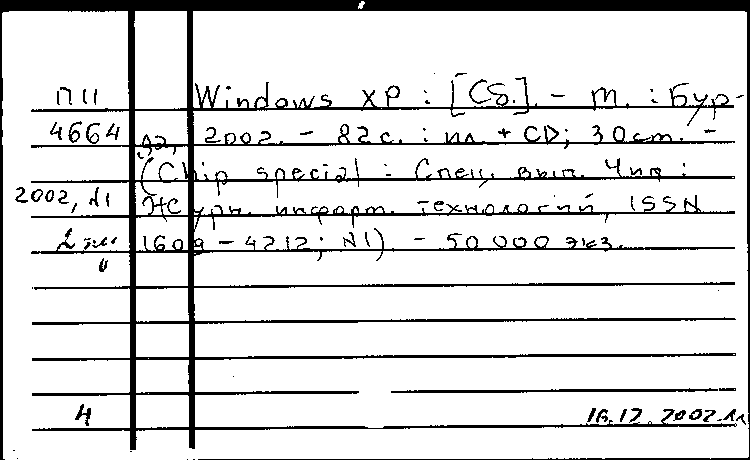 П11 Windows XP : [Сб.]. - М. : Бур-
4664 да, 2002. - 82с. : ил. + CD; 30cm. -
(Chip special : Спец. вып. Чип :
2002, №1 Журн. информ. технологий, ISSN
2 экз 1609 - 4212; №1). - 50 000 экз.
4 16.12.2002